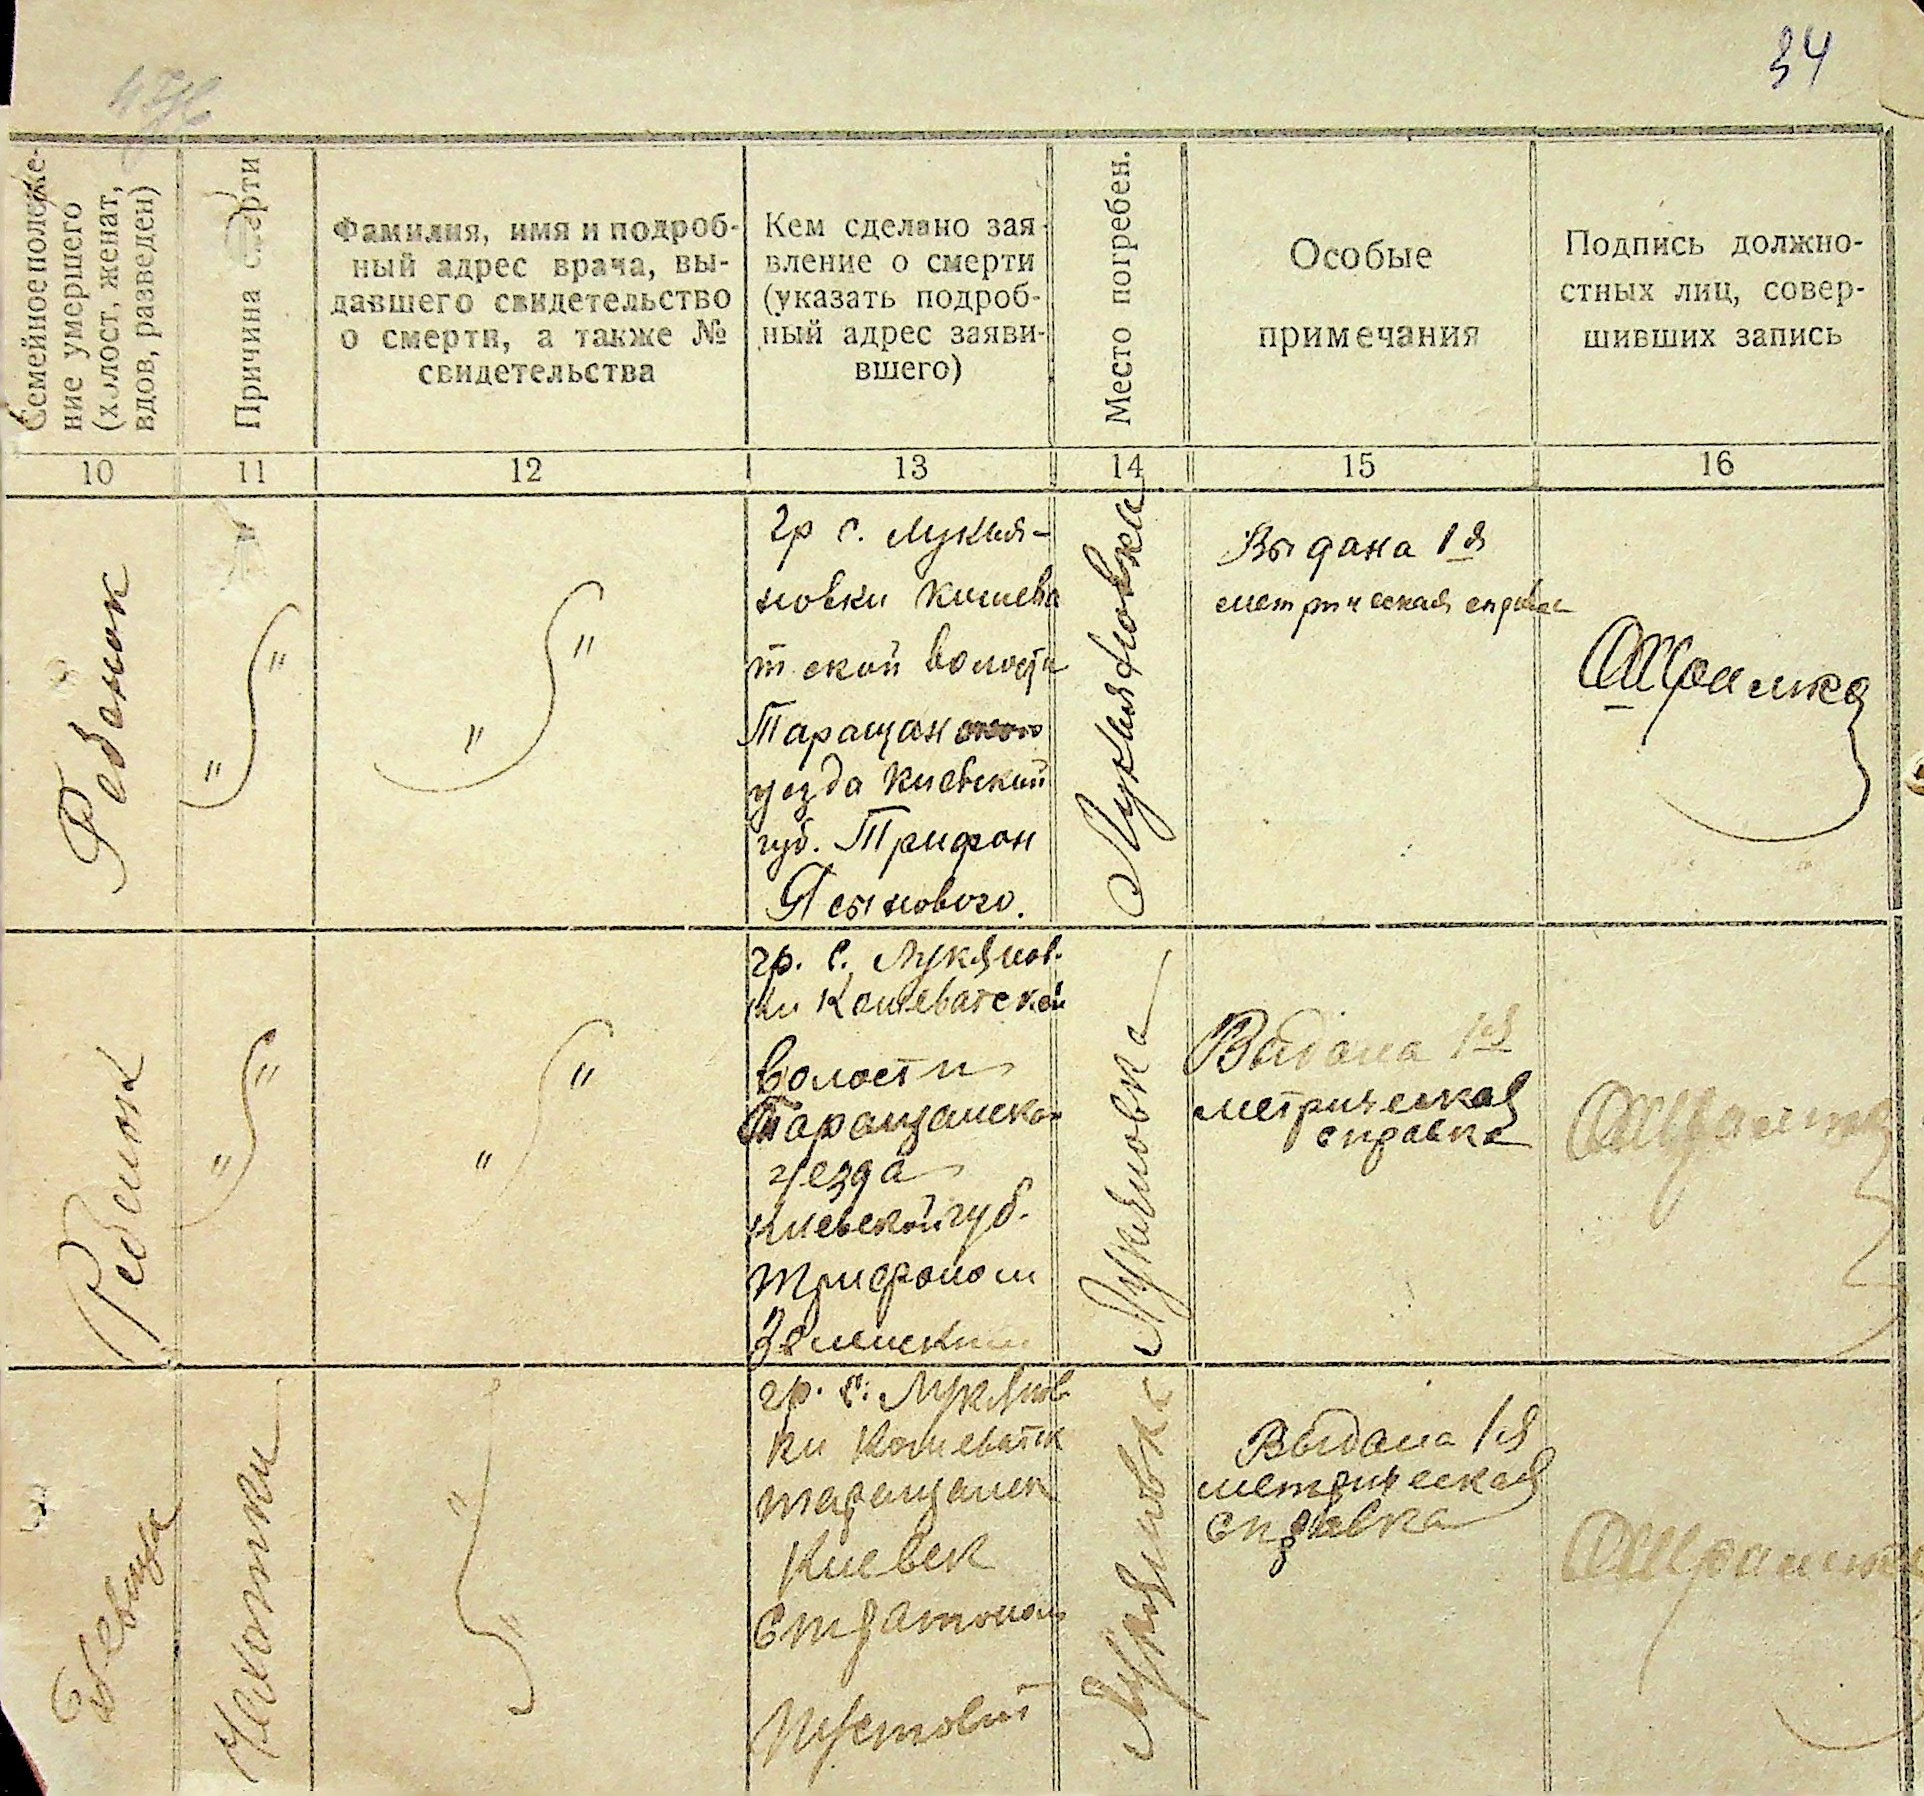 34
Семейное положе-
ние умершего
(холост, женат,
вдов, разведен)
Причина смерти
Фамилия, имя и подроб-
ный адрес врача, вы-
давшего свидетельство
о смерти, а также №
свидетельства
Кем сделано зая-
вление о смерти
(указать подроб-
ный адрес заяви-
вшего)
Место погребен.
Особые
примечания
Подпись должно-
стных лиц, совер-
шивших запись
10 11 12 13 14 15 16
Ребенок
" "
" "
гр с. Лукья-
новки Кошева
тской волости
Таращанского
уезда Киевской
губ. Трифон
Лукьяновка
Выдана 1я
метрическая справк
Ребенок
" "
" "
гр. с. Лукянов-
ки Кошеватской
волости
Таращанско
уезда
Киевской губ.
Трифоном
Лукяновка
Выдана 1я
метрическая
справка
Девица
Чахотки
" "
гр. с. Лукянов
ки Кошеватск
таращанск
Киевск
Лукяновка
Выдана 1я
метрическая
справка